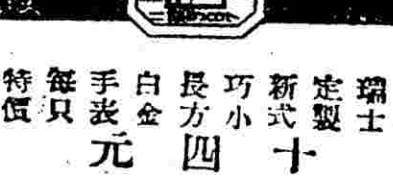 瑞士定製新式巧小長方白金手表每只特價
十四元